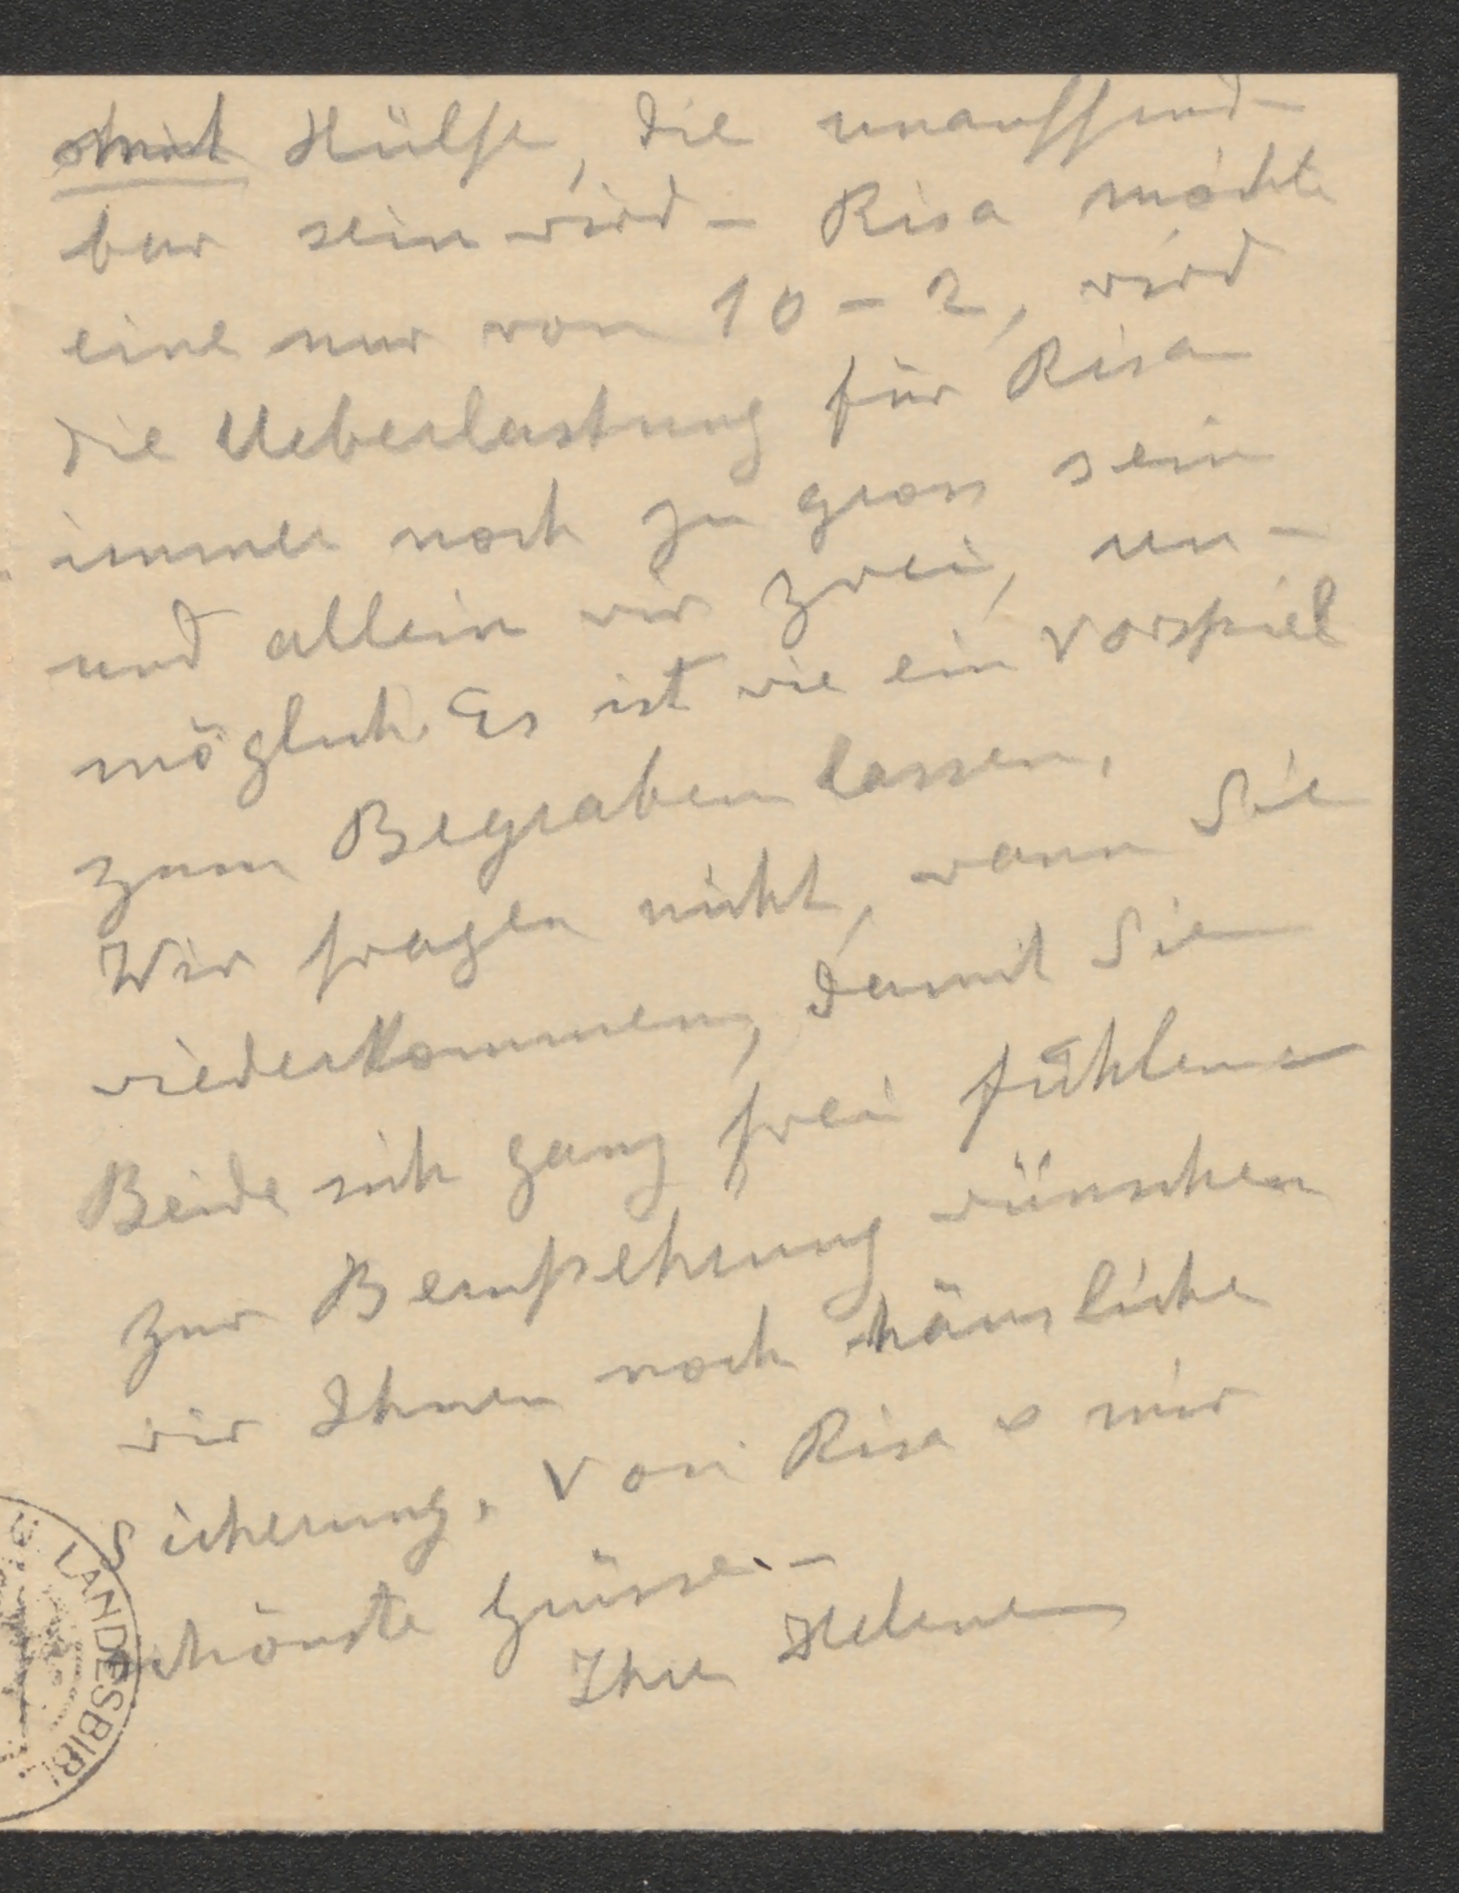 mit Hülfe, die unauffind-
bar sein wird – Risa möchte
eine nur von 10 – 2, wird
die Ueberlastung für Risa
immer noch zu gross sein
und allein wir zwei, un-
möglich. Es ist wie ein Vorspiel
zum Begraben lassen.
Wir fragen nicht, wann Sie
wiederkommen, damit Sie
Beide sich ganz frei fühlen
zur wünschen
wir Ihnen noch häusliche
Sicherung. Von Risa & mir
schönste Grüsse. –
Ihre Helene
LANDESBIBL